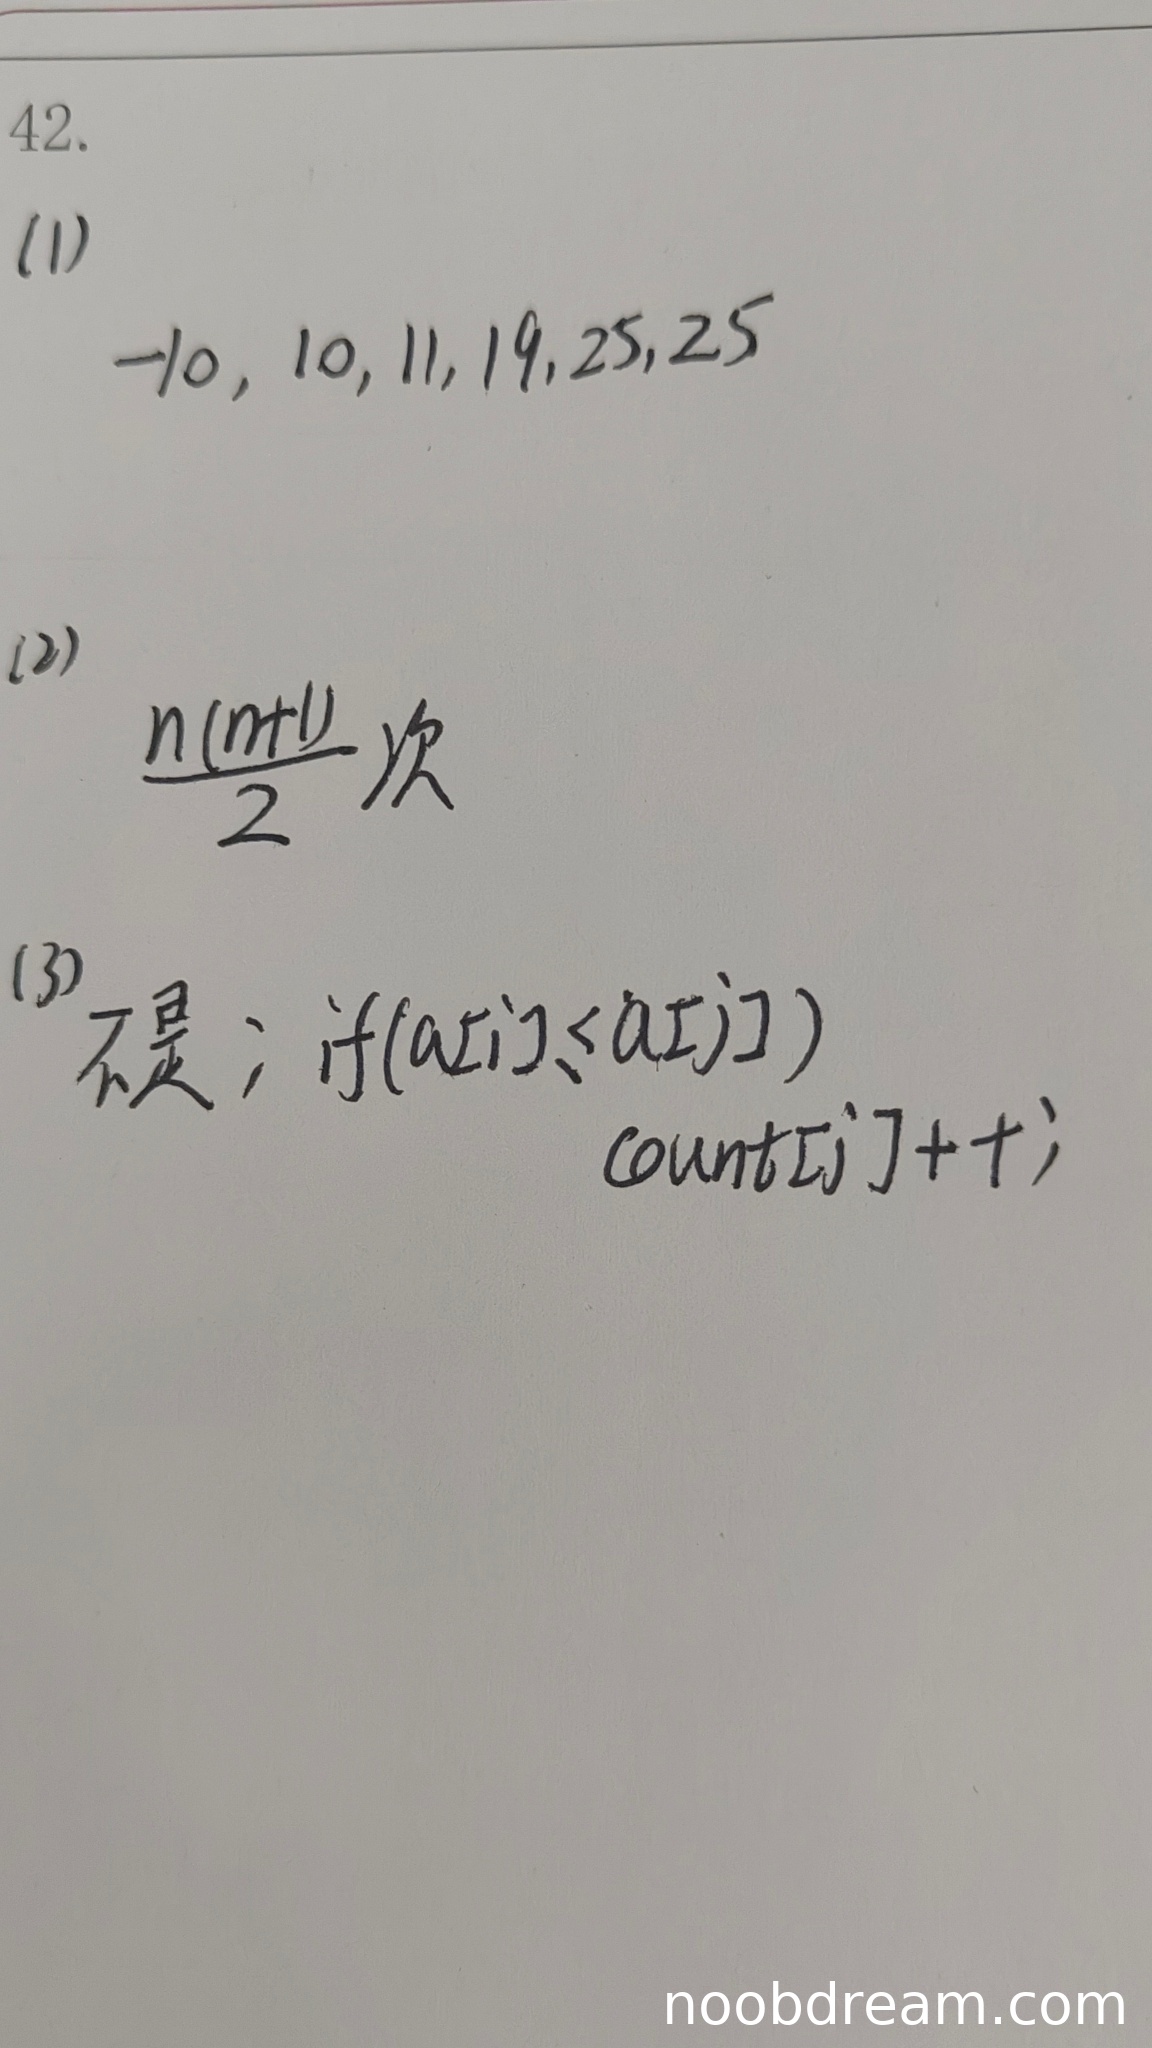 42.
(1)
-10, 10, 11, 19, 25, 25
(2)
n(n+1)/2 次
(3) 不是; if(a[i]≤a[j])
count[j]++;
noobdream.com